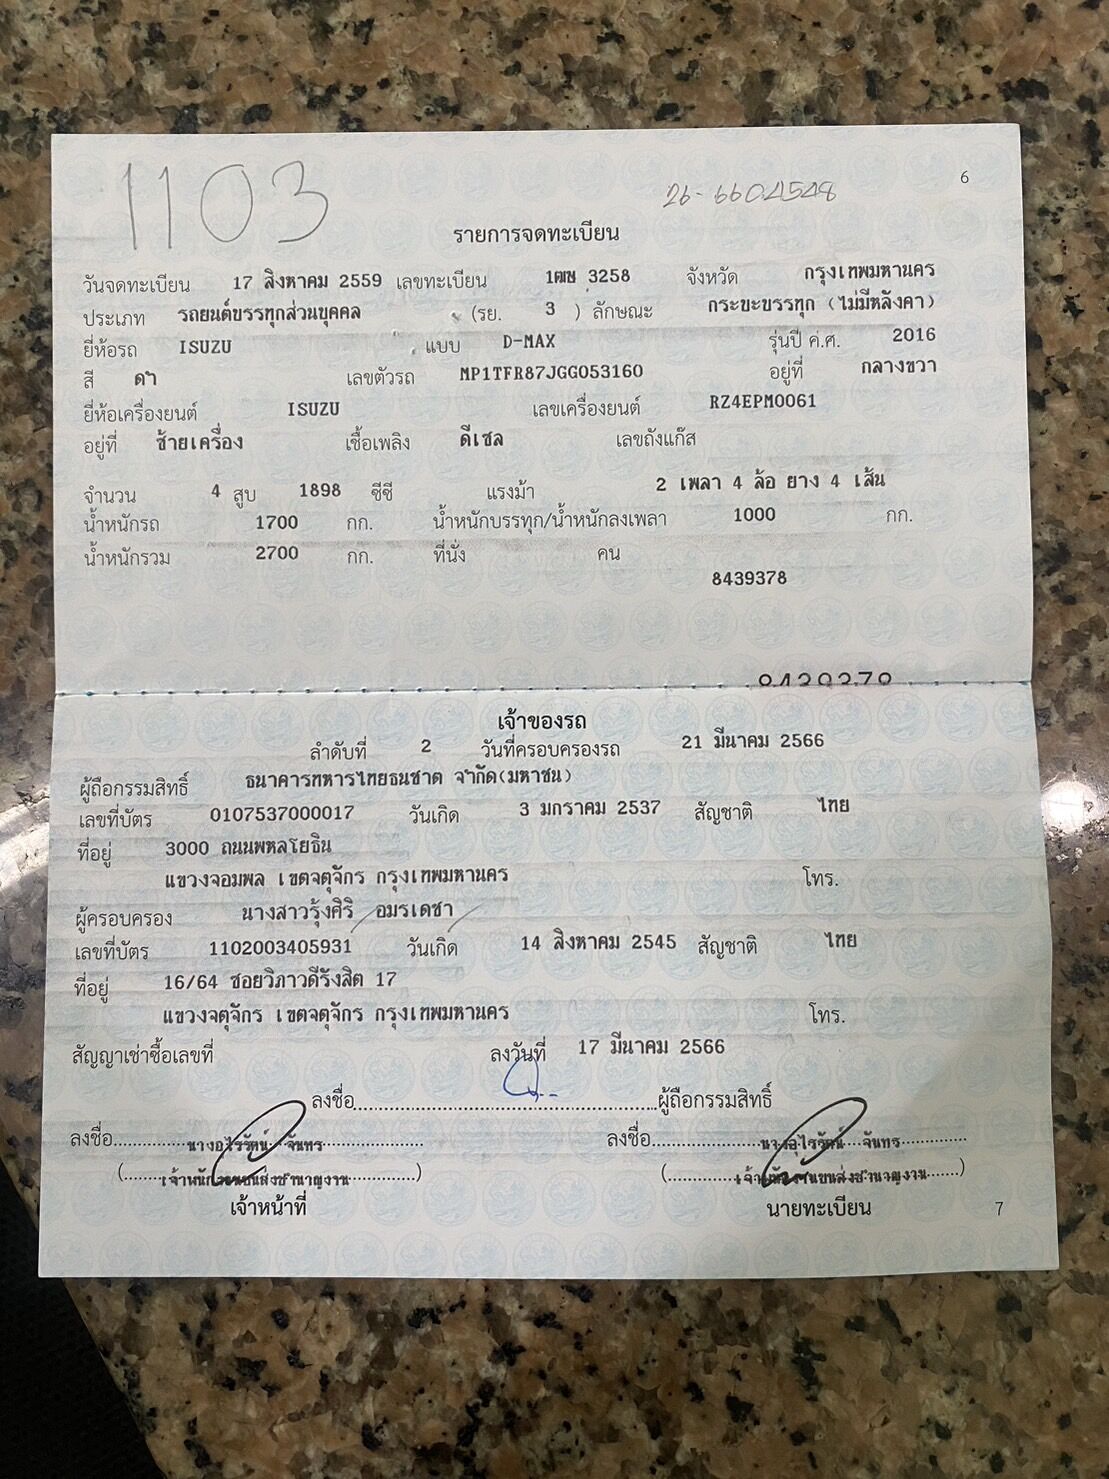 1103
26-6604548
6
รายการจดทะเบียน
วันจดทะเบียน 17 สิงหาคม 2559 เลขทะเบียน 1ฒฆ 3258 จังหวัด กรุงเทพมหานคร
ประเภท รถยนต์บรรทุกส่วนบุคคล (รย. 3 ) ลักษณะ กระบะบรรทุก (ไม่มีหลังคา)
ยี่ห้อรถ ISUZU แบบ D-MAX รุ่นปี ค.ศ. 2016
สี ดำ เลขตัวรถ MP1TFR87JGG053160 อยู่ที่ กลางขวา
ยี่ห้อเครื่องยนต์ ISUZU เลขเครื่องยนต์ RZ4EPM0061
อยู่ที่ ซ้ายเครื่อง เชื้อเพลิง ดีเซล เลขถังแก๊ส
จำนวน 4 สูบ 1898 ซีซี แรงม้า 2 เพลา 4 ล้อ ยาง 4 เส้น
น้ำหนักรถ 1700 กก. น้ำหนักบรรทุก/น้ำหนักลงเพลา 1000 กก.
น้ำหนักรวม 2700 กก. ที่นั่ง คน
8439378
8439378
เจ้าของรถ
ลำดับที่ 2 วันที่ครอบครองรถ 21 มีนาคม 2566
ผู้ถือกรรมสิทธิ์ ธนาคารทหารไทยธนชาต จำกัด(มหาชน)
เลขที่บัตร 0107537000017 วันเกิด 3 มกราคม 2537 สัญชาติ ไทย
ที่อยู่ 3000 ถนนพหลโยธิน
แขวงจอมพล เขตจตุจักร กรุงเทพมหานคร โทร.
ผู้ครอบครอง นางสาวรุ้งศิริ อมรเดชา
เลขที่บัตร 1102003405931 วันเกิด 14 สิงหาคม 2545 สัญชาติ ไทย
ที่อยู่ 16/64 ซอยวิภาวดีรังสิต 17
แขวงจตุจักร เขตจตุจักร กรุงเทพมหานคร โทร.
สัญญาเช่าซื้อเลขที่ ลงวันที่ 17 มีนาคม 2566
ลงชื่อ ผู้ถือกรรมสิทธิ์
ลงชื่อ นางอุไรรัตน์ จันทร ลงชื่อ นางอุไรรัตน์ จันทร
(เจ้าพนักงานขนส่งชำนาญงาน) (เจ้าพนักงานขนส่งชำนาญงาน)
เจ้าหน้าที่ นายทะเบียน 7